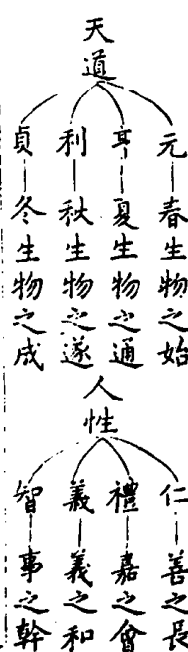 天道
元 春生物之始
亨 夏生物之通
利 秋生物之遂
貞 冬生物之成
人性
仁 善之長
禮 嘉之會
義 義之和
智 事之幹